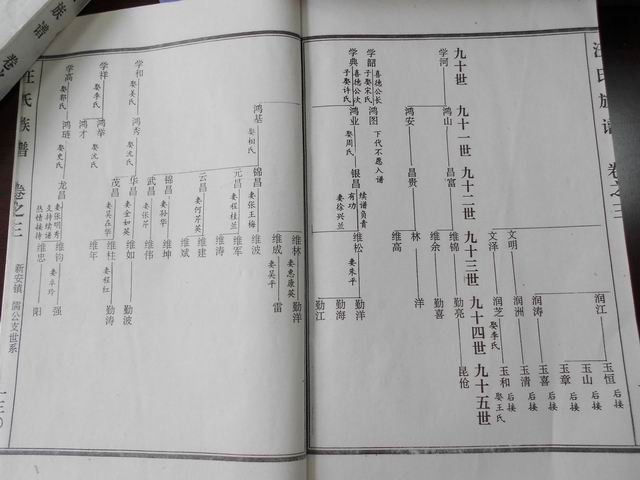 汪氏族谱 卷之三
润江
玉恒 后接
玉山 后接
玉章 后接
润涛
玉喜 后接
文明
润洲
玉清 后接
文泽
润芝 娶季氏
玉和 娶王氏 后接
九十世 九十一世 九十二世 九十三世 九十四世 九十五世
学河
鸿山
昌富
维锦
勤亮
昆伧
维余
勤喜
鸿安
昌贵
林
洋
维高
学韶 喜德公长子 娶宋氏
鸿图 下代不愿入谱
学典 喜德公次子 娶许氏
鸿业 娶周氏
银昌 续谱负责 有功 娄徐兴兰
维松 娄朱平
勤洋
勤海
勤江
鸿基 娶相氏
锦昌 娄张玉梅
维林 娄惠康英
勤洋
维成 娄吴平
雷
维波
元昌 娄程桂兰
维军
维涛
云昌 娄何芹英
维建
维斌
学和 娶姜氏
鸿秀 娶沈氏
锦昌 娄孙华
维坤
武昌 娄张芹
维伟
华昌 娄金如英
维如
勤波
茂昌 娄吴在华
维柱 娄程红
勤涛
维年
学祥 娶季氏
鸿举 娶沈氏
鸿才
学高 娶郭氏
鸿琏 娶史氏
龙昌 娄张明秀 支持续谱 热情接待
维钧 娄卓玲
强
维忠
阳
汪氏族谱 卷之三 新安镇 儒公支世系 一三〇
族谱 卷